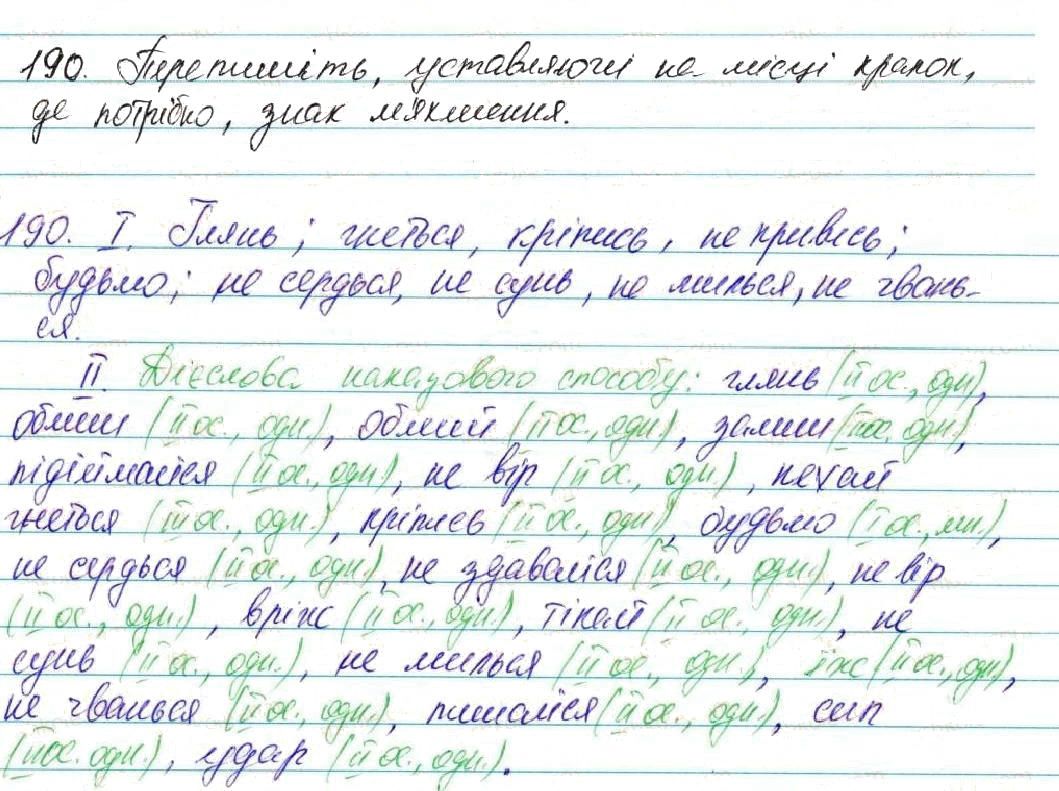 190. Перепишіть, уставляючи на місці крапок,
де потрібно, знак м'якшення.
190. І. Глянь; гнеться, кріпись, не кривись;
будьмо; не сердься, не сунь, не милься, не чвань-
ся.
ІІ. Дієслова наказового способу: глянь (ІІ ос., одн),
облиш (ІІ ос., одн), обмий (ІІ ос., одн), залиш (ІІ ос, одн),
підіймайся (ІІ ос., одн), не вір (ІІ ос., одн.), нехай
гнеться (ІІІ ос., одн.), кріпись (ІІ ос., одн), будьмо (І ос., мн),
не сердься (ІІ ос., одн), не здавайся (ІІ ос., одн), не вір
(ІІ ос., одн.), вріж (ІІ ос., одн), тікай (ІІ ос., одн.), не
сунь (ІІ ос., одн.), не милься (ІІ ос., одн.), їж (ІІ ос., одн),
не чванься (ІІ ос., одн.), пишайся (ІІ ос., одн), сип
(ІІ ос. одн.), удар (ІІ ос., одн.).